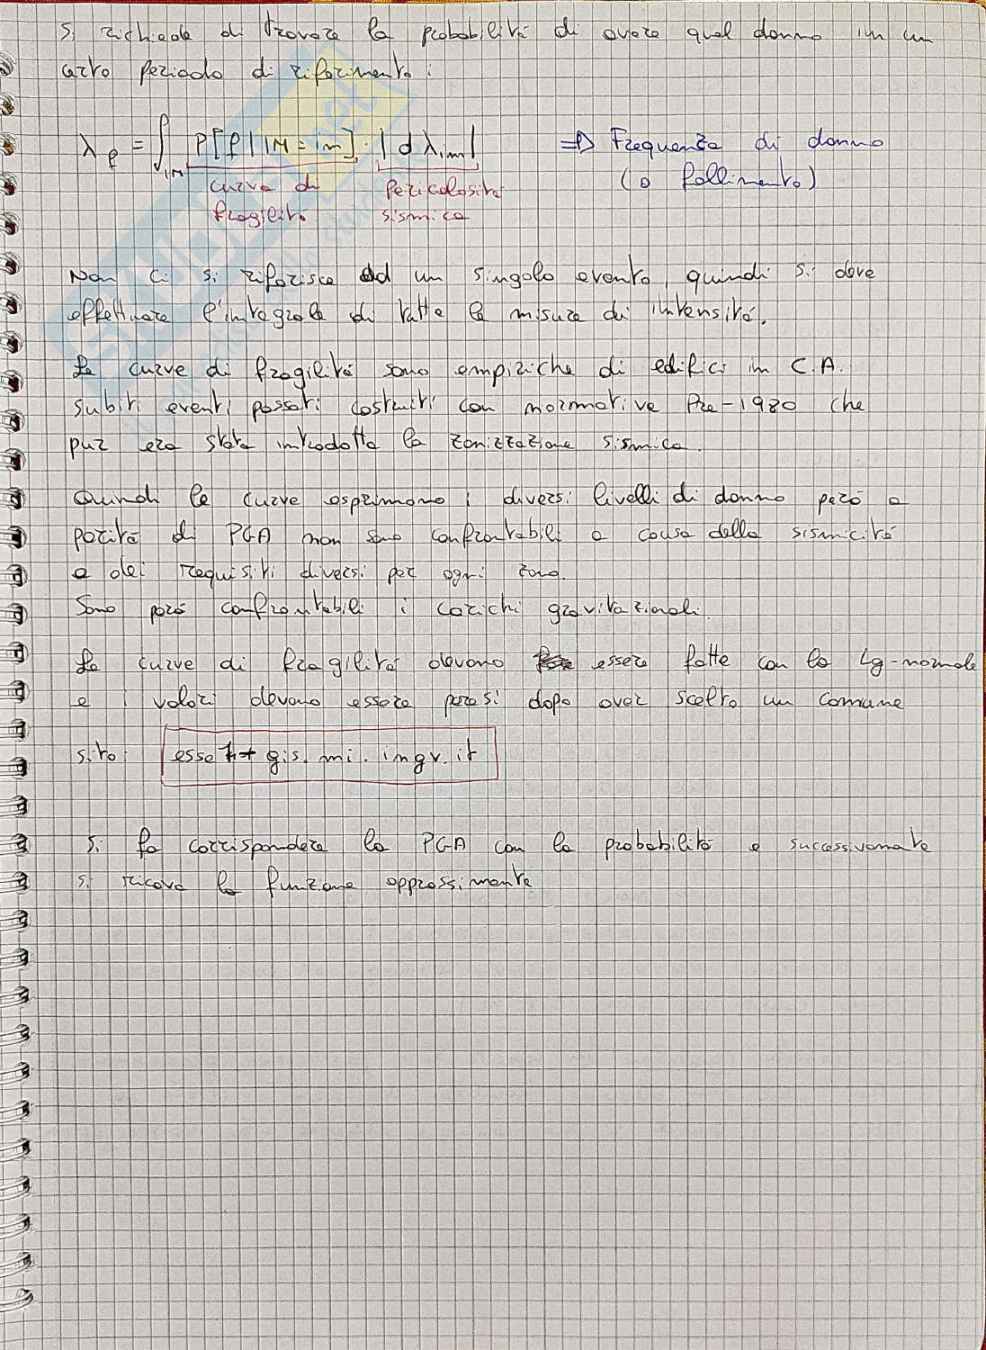 Si richiede di trovare la probabilità di avere quel danno in un
certo periodo di riferimento:
λf = ∫IM P[f | IM = im] · |dλim| ⇒ Frequenza di danno
(o fallimento)
curva di pericolosità
fragilità sismica
Non ci si riferisce ad un singolo evento, quindi si deve
effettuare l'integrale di tutte le misure di intensità.
Le curve di fragilità sono empiriche di edifici in C.A.
subiti eventi passati costruiti con normative Pre-1980 che
pur era stata introdotta la zonizzazione sismica.
Quindi le curve esprimono i diversi livelli di danno però a
parità di PGA non sono confrontabili a causa della sismicità
e dei requisiti diversi per ogni zona.
Sono però confrontabili i carichi gravitazionali.
Le curve di fragilità devono essere fatte con la Lg-normale
e i valori devono essere presi dopo aver scelto un comune
sito: esse1-gis.mi.ingv.it
Si fa corrispondere la PGA con la probabilità e successivamente
si ricava la funzione approssimante